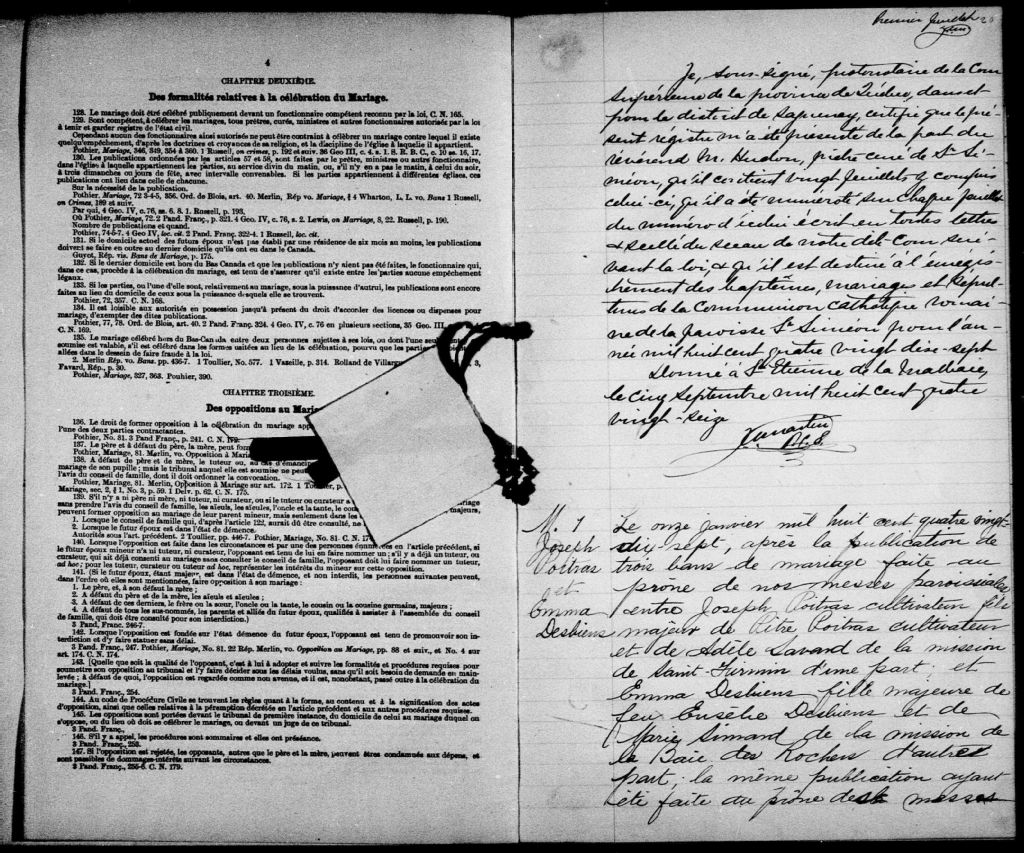 4
CHAPITRE DEUXIÈME.
Des formalités relatives à la célébration du Mariage.
128. Le mariage doit être célébré publiquement devant un fonctionnaire compétent reconnu par la loi, C. N. 165.
129. Sont compétents, à célébrer les mariages, tous prêtres, curés, ministres et autres fonctionnaires autorisés par la loi
à tenir et garder registre de l'état civil.
Cependant aucun des fonctionnaires ainsi autorisés ne peut être contraint à célébrer un mariage contre lequel il existe
quelqu'empêchement, d'après les doctrines et croyances de sa religion, et la discipline de l'église à laquelle il appartient.
Pothier, Mariage, 346, 349, 354 & 360. 1 Russell, on crimes, p. 192 et suiv. 36 Geo III, c. 4. s. 1. S. R. B. C., c. 10 ss. 16, 17.
130. Les publications ordonnées par les articles 57 et 58, sont faites par le prêtre, ministre ou autre fonctionnaire,
dans l'église à laquelle appartiennent les parties, au service divin du matin, ou, s'il n'y en a pas le matin, à celui du soir,
à trois dimanches ou jours de fête, avec intervalle convenables. Si les parties appartiennent à différentes églises, ces
publications ont lieu dans celle de chacune.
Sur la nécessité de la publication.
Pothier, Mariage, 72 3-4-5, 356. Ord. de Blois, art. 40. Merlin, Rép vo. Mariage, § 4 Wharton, L. L. vo. Bans 1 Russell,
on Crimes, 189 et suiv.
Par qui, 4 Geo. IV, c. 76, ss. 6. 8. 1. Russell, p. 193.
Où Pothier, Mariage, 72. 2 Pand. Franç., p. 321. 4 Geo. IV, c. 76, s. 2. Lewis, on Marriage, 8, 22. Russell, p. 190.
Nombre de publications et quand.
Pothier, 74-5-7. 4 Geo IV, loc. cit. 2 Pand. Franç. 322-4. 1 Russell, loc. cit.
131. Si le domicile actuel des futurs époux n'est pas établi par une résidence de six mois au moins, les publications
doivent se faire en outre au dernier domicile qu'ils ont eu dans le Canada.
Guyot, Rép. vis. Bans de Mariage, p. 175.
132. Si le dernier domicile est hors du Bas Canada et que les publications n'y aient pas été faites, le fonctionnaire qui,
dans ce cas, procède à la célébration du mariage, est tenu de s'assurer qu'il existe entre les parties aucune empêchement
légaux.
133. Si les parties, ou l'une d'elle sont, relativement au mariage, sous la puissance d'autrui, les publications sont encore
faites au lieu du domicile de ceux sous la puissance desquels elle se trouvent.
Pothier, 72, 357. C. N. 168.
134. Il est loisible aux autorités en possession jusqu'à présent du droit d'accorder des licences ou dispenses pour
mariage, d'exempter des dites publications.
Pothier, 77, 78. Ord. de Blois, art. 40. 2 Pand. Franç. 324. 4 Geo. IV, c. 76 en plusieurs sections, 35 Geo. III,
C. N. 169.
135. Le mariage célébré hors du Bas-Canada entre deux personnes sujettes à ses lois, ou dont l'une seulement
soumise est valable, s'il est célébré dans les formes usitées au lieu de la célébration, pourvu que les parties
allées dans le dessein de faire fraude à la loi.
2. Merlin Rép. vo. Bans. pp. 436-7. 1 Toullier, No. 577. 1 Vazeille, p. 314. Rolland de Villargues 3,
Favard, Rép., p. 30.
Pothier, Mariage, 327, 363. Pouhier, 390.
CHAPITRE TROISIÈME.
Des oppositions au Maria
136. Le droit de former opposition à la célébration du mariage app
l'une des deux parties contractantes.
Pothier, No. 81. 3 Pand Franç., p. 241. C. N. 172.
137. Le père et à défaut du père, la mère, peut form
Pothier, Mariage, 81. Merlin, vo. Opposition à Maria
138. A défaut de père et de mère, le tuteur ou, au cas d'émanci
mariage de son pupille; mais le tribunal auquel elle est soumise ne peut
l'avis du conseil de famille, dont il doit ordonner la convocation.
Pothier, Mariage, 81. Merlin, Opposition à Mariage sur art. 172. 1 T
Mariage, sec. 2, § 1, No. 3, p. 59. 1 Delv. p. 62. C. N. 175.
139. S'il n'y a ni père ni mère, ni tuteur, ni curateur, ou si le tuteur ou curateur a
sans prendre l'avis du conseil de famille, les aïeuls, les aïeules, l'oncle et la tante, le
peuvent former opposition au mariage de leur parent mineur, mais seulement dans les majeurs,
1. Lorsque le conseil de famille qui, d'après l'article 122, aurait dû être consulté, ne
2. Lorsque le futur époux est dans l'état de démence.
Autorités sous l'art. précédent. 2 Toullier, pp. 446-7. Pothier, Mariage, No. 81. C. N. 17
140. Lorsque opposition est faite dans les circonstances et par une des personnes énumérées en l'article précédent, si
le futur époux mineur n'a ni tuteur, ni curateur, l'opposant est tenu de lui en faire nommer un; s'il y a déjà un tuteur, ou
curateur, qui ait déjà consenti au mariage sans consulter le conseil de famille, l'opposant doit lui faire nommer un tuteur,
ad hoc; pour les tuteur, curateur ou tuteur ad hoc, représenter les intérêts du mineur sur cette opposition.
141. (Si le futur époux, étant majeur, est dans l'état de démence, et non interdit, les personnes suivantes peuvent,
dans l'ordre où elles sont mentionnées, faire opposition à son mariage:
1. Le père, et, à son défaut la mère;
2. A défaut du père et de la mère, les aïeuls et aïeules;
3. A défaut de ces derniers, le frère ou la sœur, l'oncle ou la tante, le cousin ou la cousine germains, majeurs;
4. A défaut de tous les sus-nommés, les parents et alliés du futur époux, qualifiés à assister à l'assemblée du conseil
de famille, qui doit être consulté pour son interdiction.)
3 Pand, Franc. 246-7.
142. Lorsque l'opposition est fondée sur l'état démence du futur époux, l'opposant est tenu de promouvoir son in-
terdiction et d'y faire statuer sans délai.
3 Pand. Franç., 247. Pothier, Mariage, No. 81. 22 Rép. Merlin, vo. Opposition au Mariage, pp. 88 et suiv., et No. 4 sur
art. 174. C. N. 174.
143. [Quelle que soit la qualité de l'opposant, c'est à lui à adopter et suivre les formalités et procédures requises pour
soumettre son opposition au tribunal et l'y faire décider sous les délais voulus, sans qu'il soit besoin de demande en main-
levée; à défaut de quoi, l'opposition est regardée comme non avenue, et il est, nonobstant, passé outre à la célébration du
mariage.]
3 Pand. Franç., 254.
144. Au code de Procédure Civile se trouvent les règles quant à la forme, au contenu et à la signification des actes
d'opposition, ainsi que celles relatives à la péremption décrétée en l'article précédent et aux autres procédures requises.
145. Les oppositions sont portées devant le tribunal de première instance, du domicile de celui au mariage duquel on
s'oppose, ou du lieu où doit se célébrer le mariage, ou devant un juge de ce tribunal.
3 Pand. Franç.,
146. S'il y a appel, les procédures sont sommaires et elles ont préséance.
3 Pand. Franç., 253.
147. Si l'opposition est rejetée, les opposants, autres que le père et la mère, peuvent être condamnés aux dépens, et
sont passibles de dommages-intérêts suivant les circonstances.
3 Pand. Franç., 255-6. C. N. 179.
Premier feuillet
Je, sous-signé, protonotaire de la Cour
Supérieure de la province de Québec, dans et
pour le district de Saguenay, certifie que le pré-
sent régistre m'a été présenté de la part du
révérend M. Hudon, prêtre curé de St Si-
méon, qu'il contient vingt feuillets y compris
celui-ci, qu'il a été numéroté sur chaque feuillet
du numéro d'icelui écrit en toutes lettres
& scellé du sceau de notre dite Cour sui-
vant la loi, & qu'il est destiné à l'enregis-
trement des baptêmes, mariages et sépul-
tures de la Communion Catholique romai-
ne de la paroisse St Siméon pour l'an-
née mil huit cent quatre vingt dix-sept
Donné à St Etienne de la Malbaie,
le cinq Septembre mil huit cent quatre
vingt-seize
P.C.S.
M. 1
Joseph
Poitras
et
Emma
Desbiens
Le onze janvier mil huit cent quatre vingt-
dix-sept, après la publication de
trois bans de mariage faite au
prône de nos messes paroissiales
entre Joseph Poitras cultivateur fils
majeur de Pitre Poitras cultivateur
et de Adèle Savard de la mission
de Saint-Firmin d'une part et
Emma Desbiens fille majeure de
feu Eusèbe Desbiens et de
Marie Simard de la mission de
la Baie des Rochers d'autre
part; la même publication ayant
été faite au prône des messes